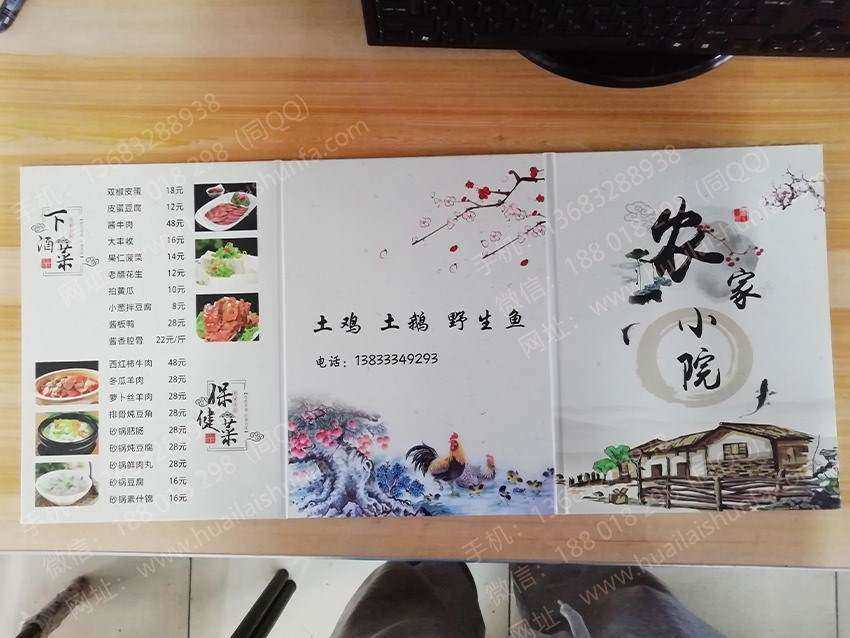 下酒菜
双椒皮蛋 18元
皮蛋豆腐 12元
酱牛肉 48元
大丰收 16元
果仁菠菜 14元
老醋花生 12元
拍黄瓜 10元
小葱拌豆腐 8元
酱板鸭 28元
酱香腔骨 22元/斤
保健菜
西红柿牛肉 48元
冬瓜羊肉 28元
萝卜丝羊肉 28元
排骨炖豆角 28元
砂锅肥肠 28元
砂锅炖豆腐 28元
砂锅鲜肉丸 28元
砂锅豆腐 16元
砂锅素什锦 16元
土鸡 土鹅 野生鱼
电话：13833349293
农家小院
手机：13683288938
微信：188 018 298（同QQ）
网址：www.huailaishunfa.com